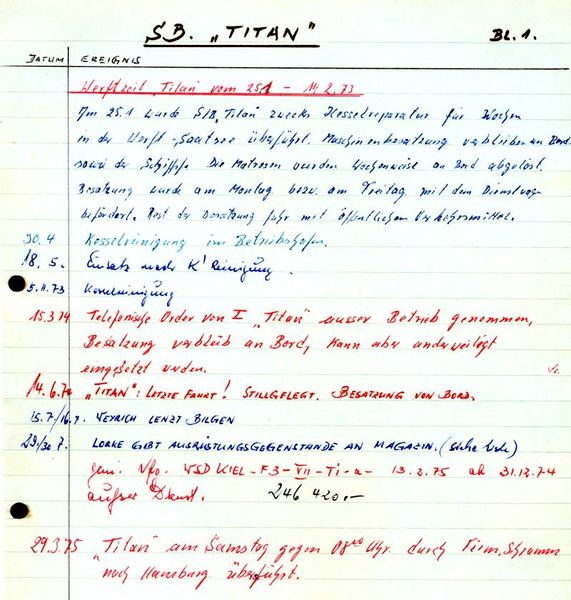 S.B. „TITAN" BL. 1.
DATUM EREIGNIS
Werftzeit „Titan" vom 25.1 – 14.2.73
Am 25.1 wurde S/B „Titan" zwecks Kesselreparatur für Wochen
in der Werft-Saatsee überführt. Maschinenbesatzung verbleiben an Bord
sowie der Schiffsf. Die Matrosen wurden Wochenweise an Bord abgelöst.
Besatzung wurde am Montag bezw. am Freitag mit dem Dienstwg.
befördert. Rest der Besatzung fuhr mit öffentlichem Verkehrsmittel.
30.4 Kesselreinigung im Betriebshafen.
18.5. Einsatz nach K' Reinigung.
5.11.73 Kesselreinigung
15.3.74 Telefonische Order von I „Titan" ausser Betrieb genommen,
Besatzung verbleib an Bord, kann aber anderweitigt
eingesetzt werden.
14.6.74 „TITAN": LETZTE FAHRT! STILLGELEGT. BESATZUNG VON BORD.
15.7/16.7. WEYRICH LENZT BILGEN
29/30.7. LORKE GIBT AUSRÜSTUNGSGEGENSTÄNDE AN MAGAZIN. (siehe Liste)
gem. Vfg. WSD KIEL - F3 - VII - Ti - a - 13.2.75 ab 31.12.74
außer Dienst. 246 420.-
29.3.75 „Titan" am Samstag gegen 08⁰⁰ Uhr durch Firm. Schramm
nach Hamburg überführt.